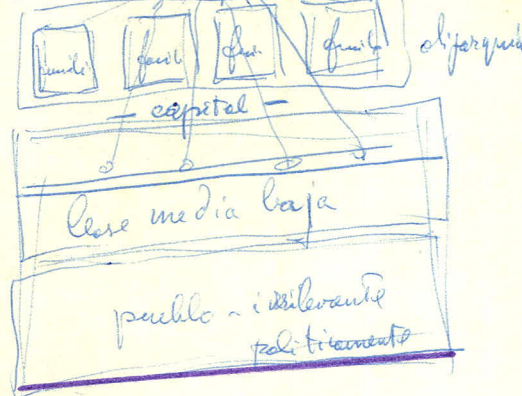 famili famili fami famili oligarquia
- capital -
clase media baja
pueblo - irrilevante
politicamente